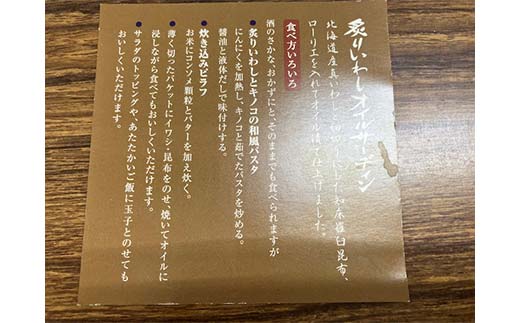 炙りいわしオイルサーディン
北海道産真いわし
知床羅臼昆布、
ローリエを入れてオイル漬で仕上げました。
食べ方いろいろ
酒のさかな、おかずにと、そのままでも食べられますが
●炙りいわしとキノコの和風パスタ
にんにくを加熱し、キノコと茹でたパスタを炒める。
醤油と液体だしで味付けする。
●炊き込みピラフ
お米にコンソメ顆粒とバターを加え炊く。
●薄く切ったバケットにイワシ・昆布をのせ、焼いてオイルに
浸しながら食べてもおいしくいただけます。
●サラダのトッピングや、あたたかいご飯に玉子とのせても
おいしくいただけます。